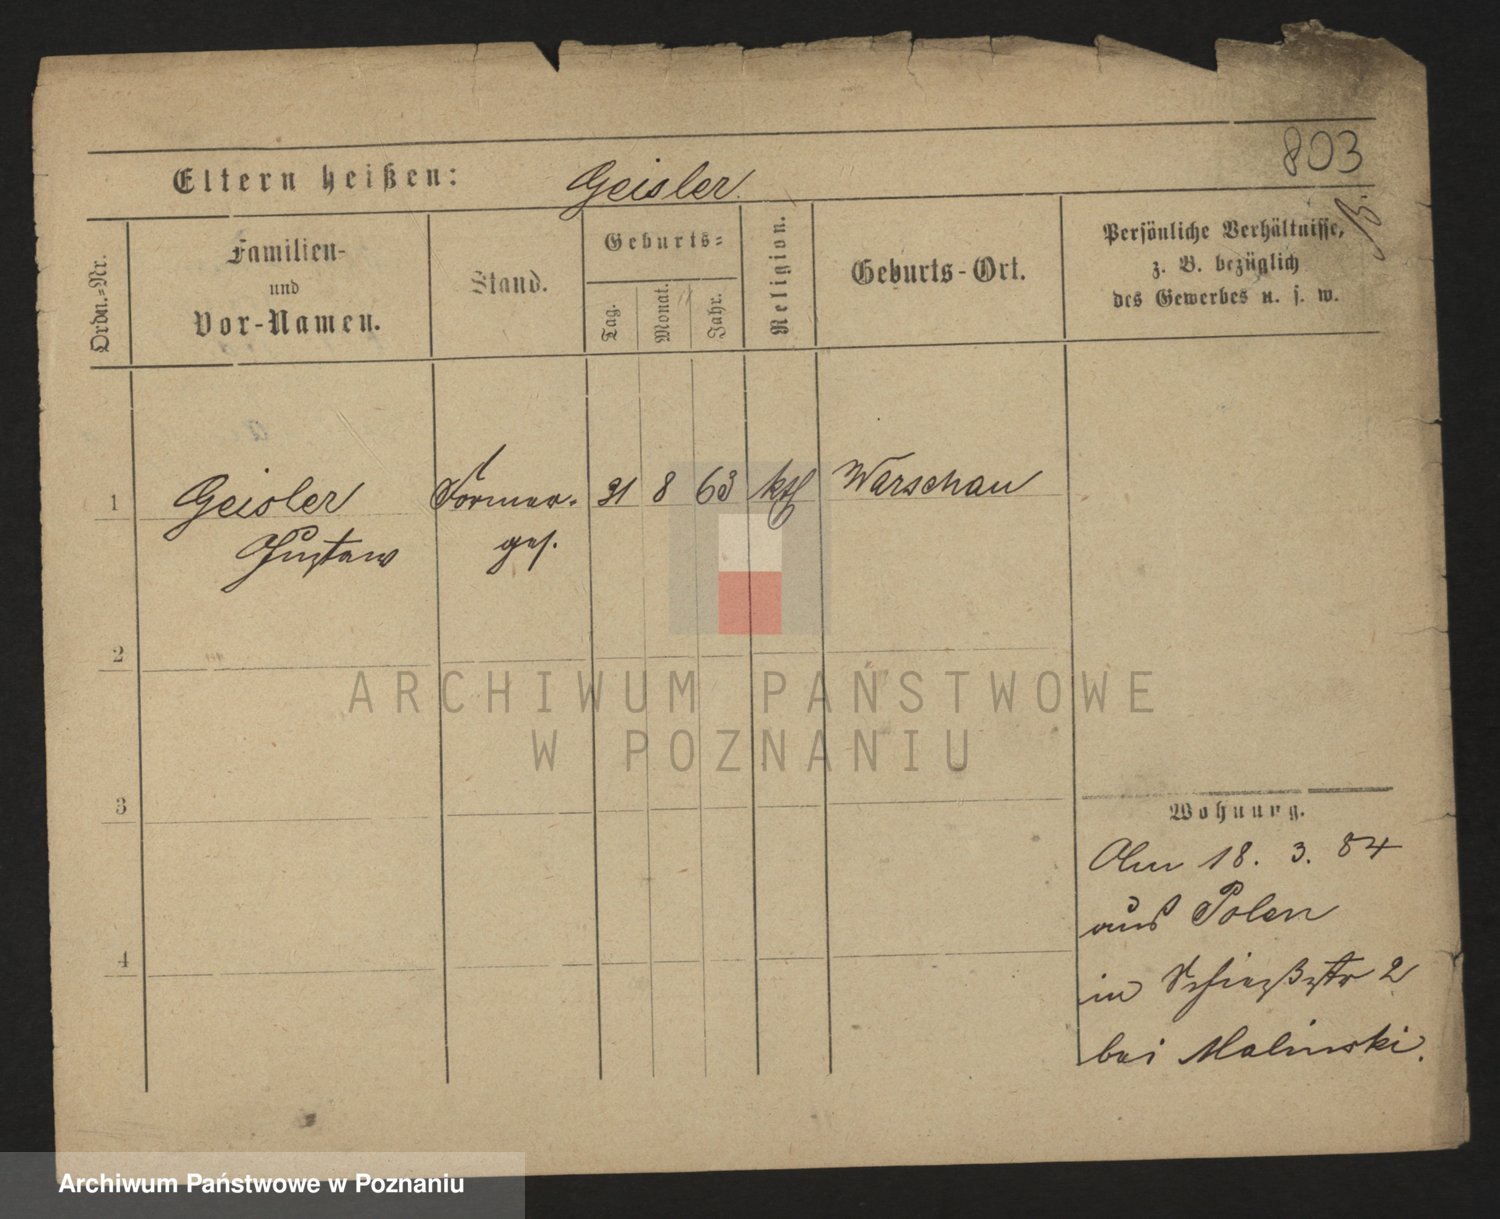 803
Eltern heißen: Geisler
B.
Ordn.-Nr.
Familien-
und
Vor-Namen.
Stand.
Geburts-
Tag.
Monat.
Jahr.
Religion.
Geburts-Ort.
Persönliche Verhältnisse,
z. B. bezüglich
des Gewerbes u. s. w.
1 Geisler Former- 31 8 63 ktl Warschau
Gustaw ges.
2
3
4
Wohnung.
Am 18. 3. 84
aus Polen
in Schießstr 2
bei Malinski.
ARCHIWUM PAŃSTWOWE
W POZNANIU
Archiwum Państwowe w Poznaniu